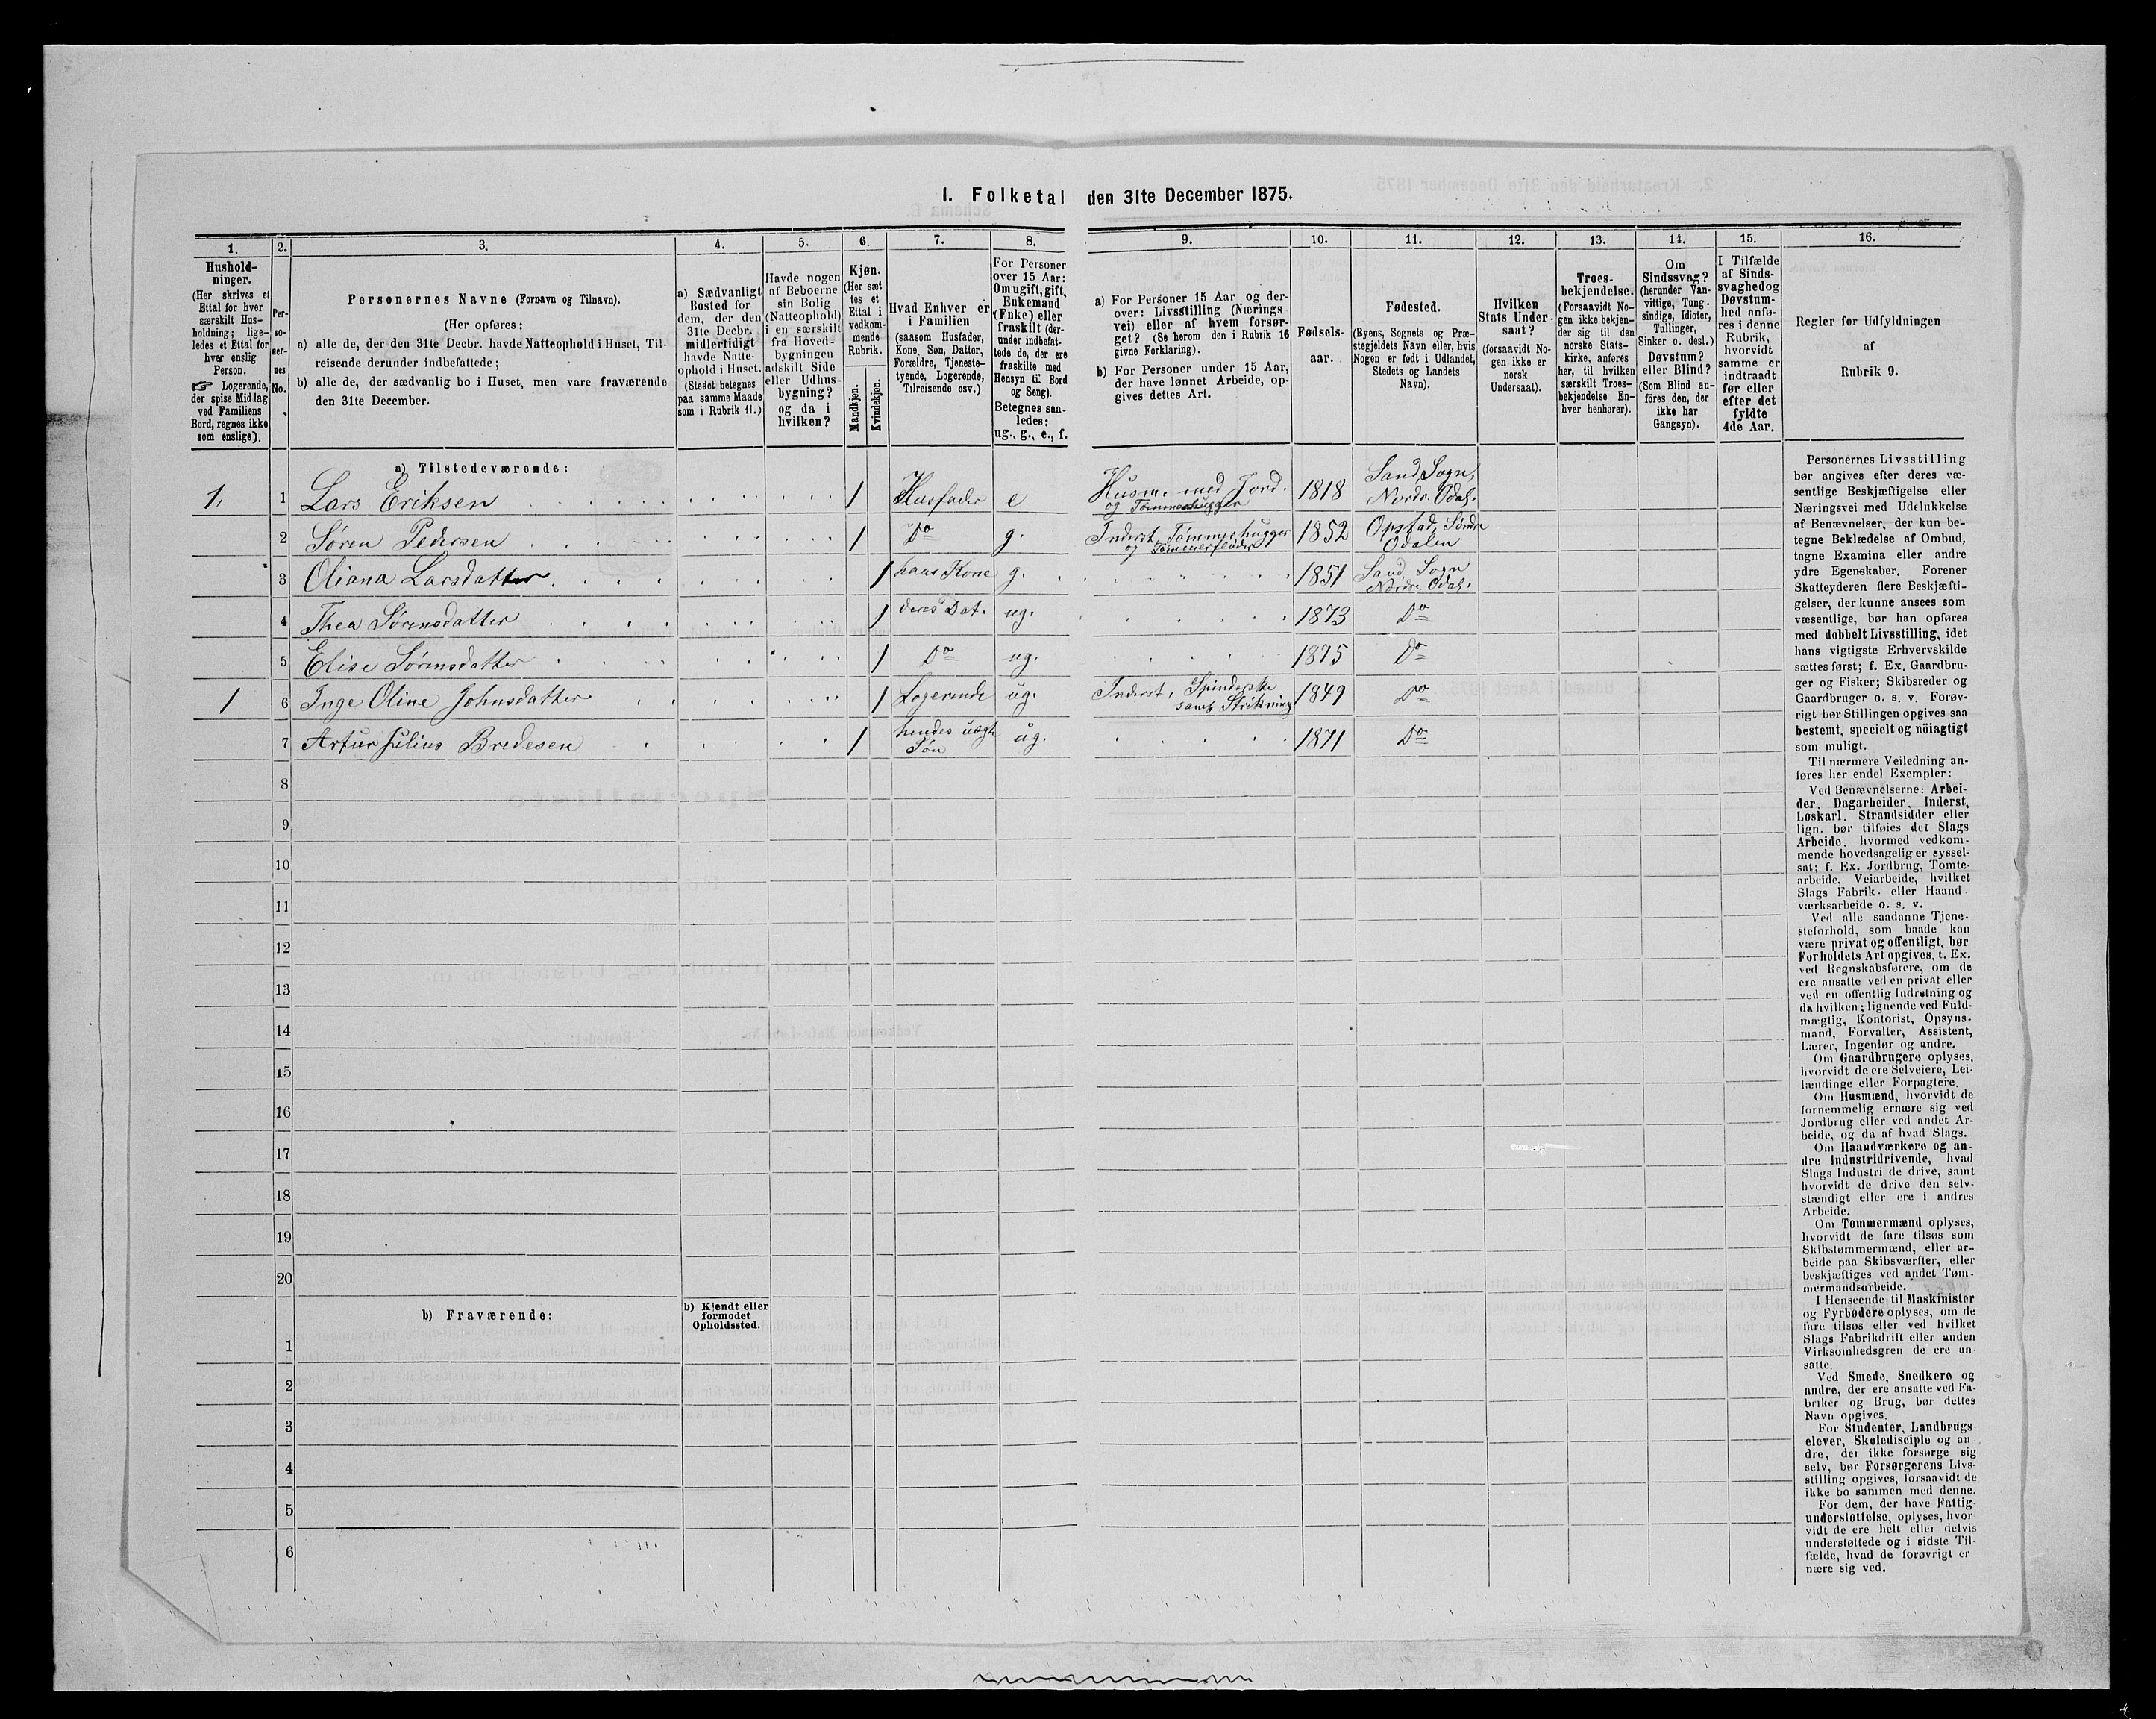 I. Folketal den 31te December 1875.
1. 2. 3. 4. 5. 6. 7. 8. 9. 10. 11. 12. 13. 14. 15. 16.
Hushold-
ninger.
(Her skrives et
Ettal for hver
særskilt Hus-
holdning; lige-
ledes et Ettal for
hver enslig
Person.
☞ Logerende,
der spise Middag
ved Familiens
Bord, regnes ikke
som enslige).
Per-
so-
ner-
nes
No.
Personernes Navne (Fornavn og Tilnavn).
(Her opføres:
a) alle de, der den 31te Decbr. havde Natteophold i Huset, Til-
reisende derunder indbefattede;
b) alle de, der sædvanlig bo i Huset, men vare fraværende
den 31te December.
a) Sædvanligt
Bosted for
dem, der den
31te Decbr.
midlertidigt
havde Natte-
ophold i Huset.
(Stedet betegnes
paa samme Maade
som i Rubrik 11.)
Havde nogen
af Beboerne
sin Bolig
(Natteophold)
i en særskilt
fra Hoved-
bygningen
adskilt Side
eller Udhus-
bygning?
og da i
hvilken?
Kjøn.
(Her sæt
tes et
Ettal i
vedkom-
mende
Rubrik.
Mandkjøn.
Kvindekjøn.
Hvad Enhver er
i Familien
(saasom Husfader,
Kone, Søn, Datter,
Forældre, Tjeneste-
tyende, Logerende,
Tilreisende osv.)
For Personer
over 15 Aar:
Om ugift, gift,
Enkemand
(Enke) eller
fraskilt (der-
under indbefat-
tede de, der ere
fraskilte med
Hensyn til Bord
og Seng).
Betegnes saa-
ledes:
ug., g., e., f.
a) For Personer 15 Aar og der-
over: Livsstilling (Nærings
vei) eller af hvem forsør-
get? (Se herom den i Rubrik 16
givne Forklaring).
b) For Personer under 15 Aar,
der have lønnet Arbeide, op-
gives dettes Art.
Fødsels-
aar.
Fødested.
(Byens, Sognets og Præ-
stegjeldets Navn eller, hvis
Nogen er født i Udlandet,
Stedets og Landets
Navn).
Hvilken
Stats Under-
saat?
(forsaavidt No-
gen ikke er
norsk
Undersaat).
Troes-
bekjendelse.
(Forsaavidt No-
gen ikke bekjen-
der sig til den
norske Stats-
kirke, anføres
her, til hvilken
særskilt Troes-
bekjendelse En-
hver henhører).
Om
Sindssvag?
(herunder Van-
vittige, Tung-
sindige, Idioter,
Tullinger,
Sinker o. desl.)
Døvstum?
eller Blind?
(Som Blind an-
føres den, der
ikke har
Gangsyn).
I Tilfælde
af Sinds-
svaghed og
Døvstum-
hed anfø-
res i denne
Rubrik,
hvorvidt
samme er
indtraadt
før eller
efter det
fyldte
4de Aar.
Regler for Udfyldningen
af
Rubrik 9.
a) Tilstedeværende:
1. 1 Lars Eriksen 1 Husfader e Husm. med Jord. og Tømmerhugger 1818 Sand, Sogn, Nordr. Odal.
2 Søren Pedersen 1 Do g. Inderst, Tømmerhugger og Tømmerfløder 1852 Opstad, Søndre Odalen
3 Oliana Larsdatter 1 hans Kone g. 1851 Sand, Sogn Nordre Odal.
4 Thea Sørensdatter 1 deres Dat. ug. 1873 Do
5 Elise Sørensdatter 1 Do ug. 1875 Do
1 6 Inge Oline Johnsdatter 1 Logerende ug. Inderst, Spinderske samt Strikning 1849 Do
7 Artur Julius Bredesen 1 hendes uægte Søn ug. 1871 Do
8
9
10
11
12
13
14
15
16
17
18
19
20
b) Fraværende:
b) Kjendt eller
formodet
Opholdssted.
1
2
3
4
5
6
Personernes Livsstilling
bør angives efter deres væ-
sentlige Beskjæftigelse eller
Næringsvei med Udelukkelse
af Benævnelser, der kun be-
tegne Beklædelse af Ombud,
tagne Examina eller andre
ydre Egenskaber. Forener
Skatteyderen flere Beskjæfti-
gelser, der kunne ansees som
væsentlige, bør han opføres
med dobbelt Livsstilling, idet
hans vigtigste Erhvervskilde
sættes først; f. Ex. Gaardbru-
ger og Fisker; Skibsreder og
Gaardbruger o. s. v. Forøv-
rigt bør Stillingen opgives saa
bestemt, specielt og nöiagtigt
som muligt.
Til nærmere Veiledning an-
føres her endel Exempler:
Ved Benævnelserne: Arbei-
der, Dagarbeider, Inderst,
Løskarl, Strandsidder eller
lign. bør tilføies det Slags
Arbeide, hvormed vedkom-
mende hovedsagelig er syssel-
sat; f. Ex. Jordbrug, Tomte-
arbeide, Veiarbeide, hvilket
Slags Fabrik- eller Haand-
værksarbeide o. s. v.
Ved alle saadanne Tjene-
steforhold, som baade kan
være privat og offentligt, bør
Forholdets Art opgives, t. Ex.
ved Regnskabsførere, om de
ere ansatte ved en privat eller
ved en offentlig Indretning og
da hvilken; lignende ved Fuld-
mægtig, Kontorist, Opsyns-
mand, Forvalter, Assistent,
Lærer, Ingeniør og andre.
Om Gaardbrugere oplyses,
hvorvidt de ere Selveiere, Lei-
lændinge eller Forpagtere.
Om Husmænd, hvorvidt de
fornemmelig ernære sig ved
Jordbrug eller ved andet Ar-
beide, og da af hvad Slags.
Om Haandværkere og an-
dre Industridrivende, hvad
Slags Industri de drive, samt
hvorvidt de drive den selv-
stændigt eller ere i andres
Arbeide.
Om Tømmermænd oplyses,
hvorvidt de fare tilsøs som
Skibstømmermænd, eller ar-
beide paa Skibsværfter, eller
beskjæftiges ved andet Tøm-
mermandsarbeide.
I Henseende til Maskinister
og Fyrbødere oplyses, om de
fare tilsøs eller ved hvilket
Slags Fabrikdrift eller anden
Virksomhedsgren de ere an-
satte.
Ved Smede, Snedkere og
andre, der ere ansatte ved Fa-
briker og Brug, bør dettes
Navn opgives.
For Studenter, Landbrugs-
elever, Skoledisciple og an-
dre, der ikke forsørge sig
selv, bør Forsørgerens Livs-
stilling opgives, forsaavidt de
ikke bo sammen med denne.
For dem, der have Fattig-
understøttelse, oplyses, hvor-
vidt de ere helt eller delvis
understøttede og i sidste Til-
fælde, hvad de forøvrigt er
nære sig ved.